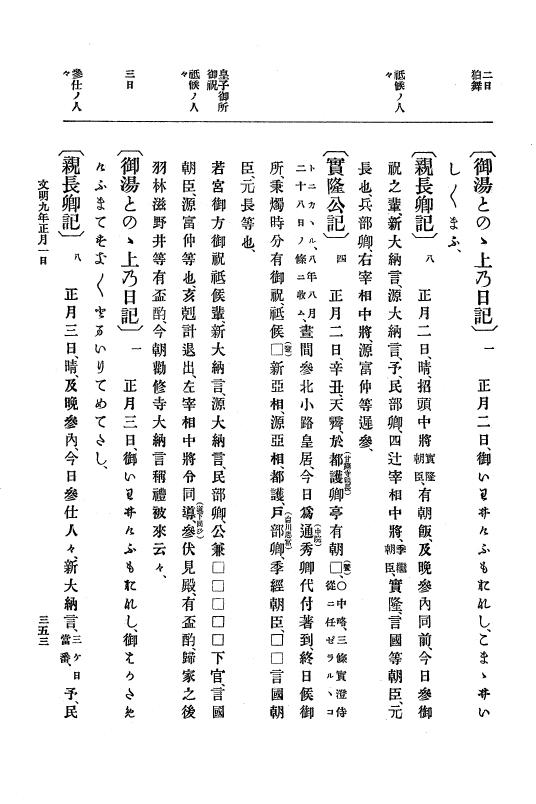 二日
狛舞
〔御湯とのゝ上乃日記〕 一 正月二日、御いわ井れふもおなし、こまゝ井い
しくまふ、
祗候ノ人
々
〔親長卿記〕 八 正月二日、晴、招頭中將實隆朝臣、有朝飯、及晚參內同前、今日參御
祝之輩、新大納言、源大納言、予、民部卿、四辻宰相中將、季經朝臣、實隆、言國等朝臣、元
長也、兵部卿、右宰相中將、源富仲等遲參、
〔實隆公記〕 四 正月二日、辛丑、天霽、於都護卿亭有朝□、○中略、三條實澄侍從ニ任ゼラルヽコ
トニカヽル、八年八月二十八日ノ條ニ收ム、晝間參北小路皇居、今日爲通秀卿代付著到、終日候御
所、秉燭時分有御祝、祗候□新亞相、源亞相、都護、戶部卿、季經朝臣、□□言國朝
臣、元長等也、
皇子御所
御祝
祗候ノ人
々
若宮御方御祝祗候輩新大納言、源大納言、民部卿、公兼□□□□□下官、言國
朝臣、源富仲等也、亥剋計退出、左宰相中將令同導、參伏見殿、有盃酌、歸家之後
羽林滋野井等有盃酌、今朝勸修寺大納言稱禮被來云々、
三日
〔御湯とのゝ上乃日記〕 一 正月三日、御いわ井れふもおなし、御
れふまて いりてめてさし、
參仕ノ人
々
〔親長卿記〕 八 正月三日、晴、及晚參內、今日參仕人々、新大納言、三ケ日當番、予、民
文明九年正月二日
三五三